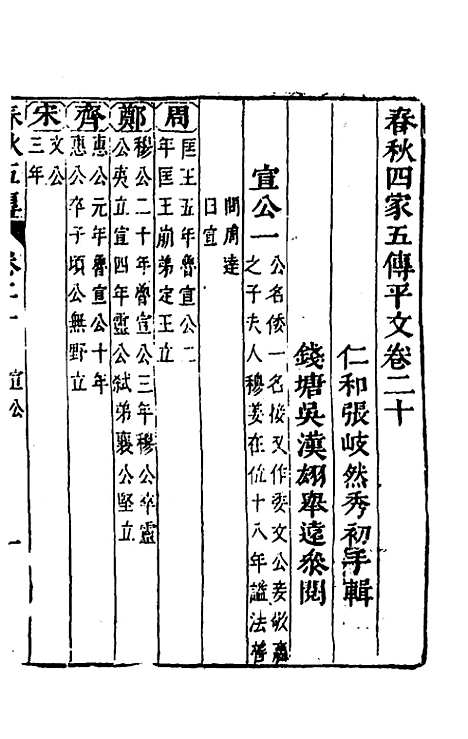 春秋四家五傳平文卷二十
仁和張岐然秀初手輯
錢塘吳漢翊舉遠參閱
宣公一
公名倭一名接又作委文公妾敬嬴
之子夫人穆姜在位十八年謚法善
問周達
曰宣
周
匡王五年魯宣公二
年匡王崩弟定王立
鄭
穆公二十年魯宣公三年穆公卒靈
公夷立宣四年靈公弒弟襄公堅立
齊
惠公元年魯宣公十年
惠公卒子頃公無野立
宋
文公
三年
春秋五傳 卷二十 宣公 一